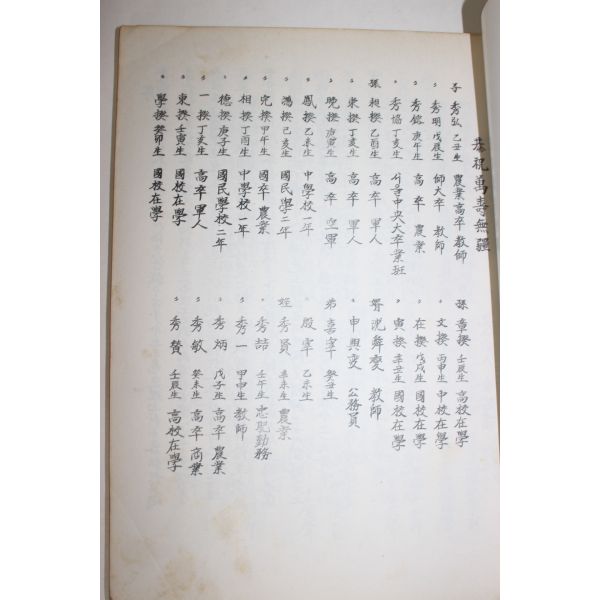 恭祝萬壽無疆
子 秀弘 乙丑生 農業高卒 教師
〃 秀明 戊辰生 師大卒 教師
〃 秀鎔 庚午生 高卒 農業
〃 秀協 丁亥生 서울中央大卒業班
孫 昶揆 乙酉生 高卒 軍人
〃 東揆 丁亥生 高卒 軍人
〃 晩揆 庚寅生 高卒 空軍
〃 鳳揆 乙未生 中學校一年
〃 鴻揆 己亥生 國民學二年
〃 完揆 甲午生 國卒 農業
〃 相揆 丁酉生 中學校一年
〃 德揆 庚子生 國民學校二年
〃 一揆 丁亥生 高卒 軍人
〃 東揆 壬寅生 國校在學
〃 學揆 癸卯生 國校在學
孫 章揆 壬辰生 高校在學
〃 文揆 丙申生 中校在學
〃 在揆 戊戌生 國校在學
〃 寅揆 辛丑生 國校在學
婿 沈舜燮 教師
〃 申興雯 公務員
弟 喜宰 癸丑生
〃 殷宰 乙未生
姪 秀賢 辛未生 農業
〃 秀喆 壬午生 忠肥勤務
〃 秀一 甲申生 教師
〃 秀炳 戊子生 高卒 農業
〃 秀敏 癸未生 高卒 商業
〃 秀贊 壬辰生 高校在學